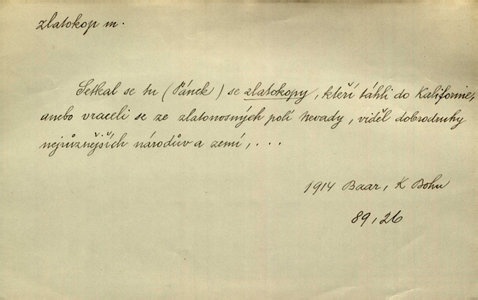 zlatokop m.
Setkal se tu (Pánek) se zlatokopy, kteří táhli do Kalifornie,
anebo vraceli se ze zlatonosných polí Nevady, viděl dobrodruhy
nejrůznějších národův a zemí, . . .
1914 Baar, K Bohu
89, 26